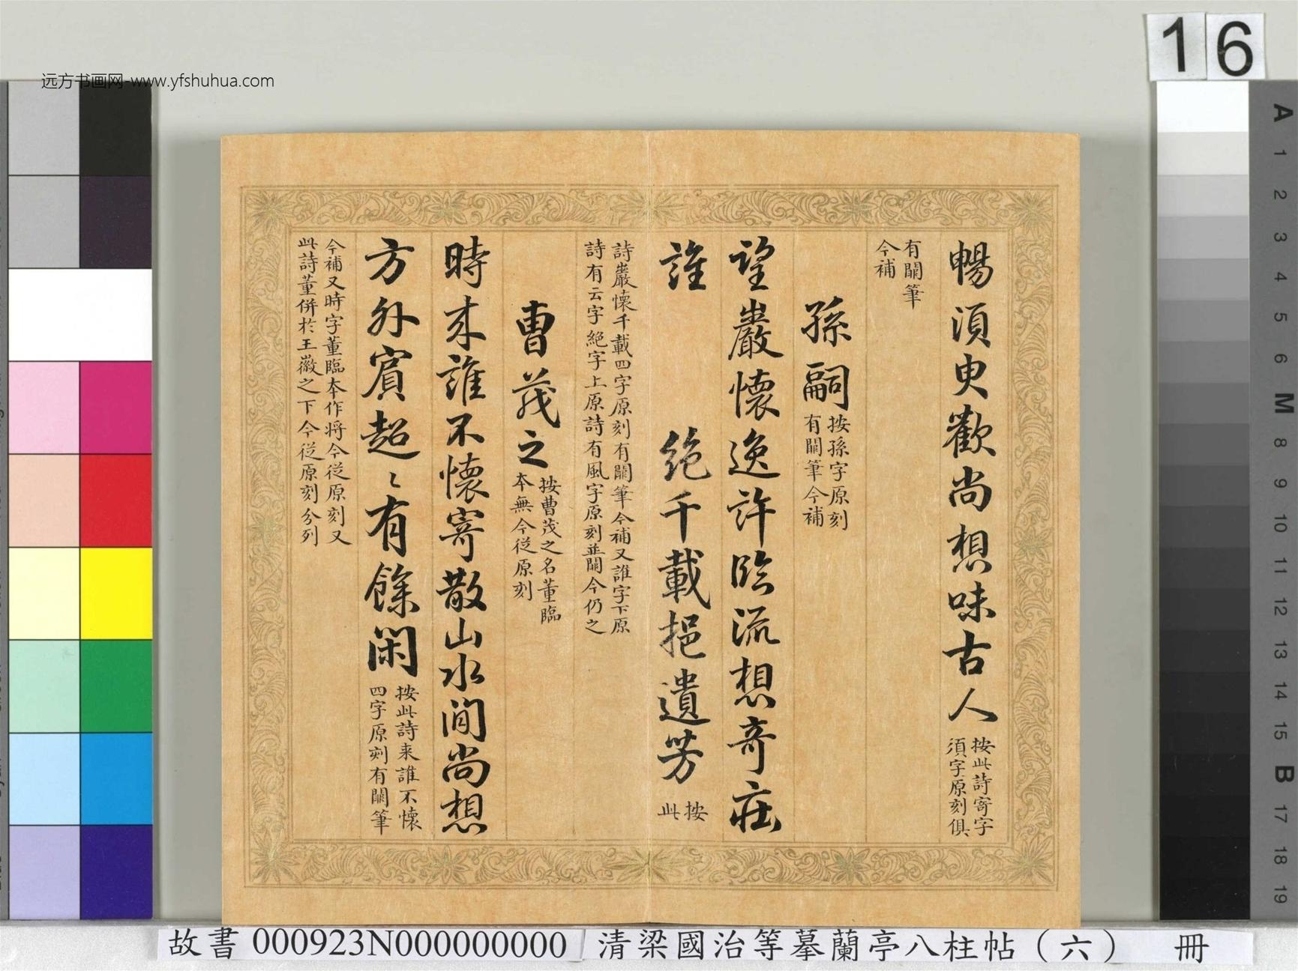 远方书画网-www.yfshuhua.com
16
暢須臾歡尚想味古人
按此詩寄字
須字原刻俱
有闕筆
今補
孫嗣
按孫字原刻
有闕筆今補
望巖懷逸許臨流想奇莊
誰 絕千載挹遺芳
按
此
詩巖懷千載四字原刻有闕筆今補又誰字下原
詩有云字絕字上原詩有風字原刻並闕今仍之
曹茂之
按曹茂之名董臨
本無今從原刻
時来誰不懷寄散山水間尚想
方外賓超〻有餘閑
按此詩来誰不懷
四字原刻有闕筆
今補又時字董臨本作將今從原刻又
此詩董併於王徽之下今從原刻分列
A 1 2 3 4 5 6 M 8 9 10 11 12 13 14 15 B 17 18 19
故書 000923N000000000 清梁國治等摹蘭亭八柱帖（六） 冊